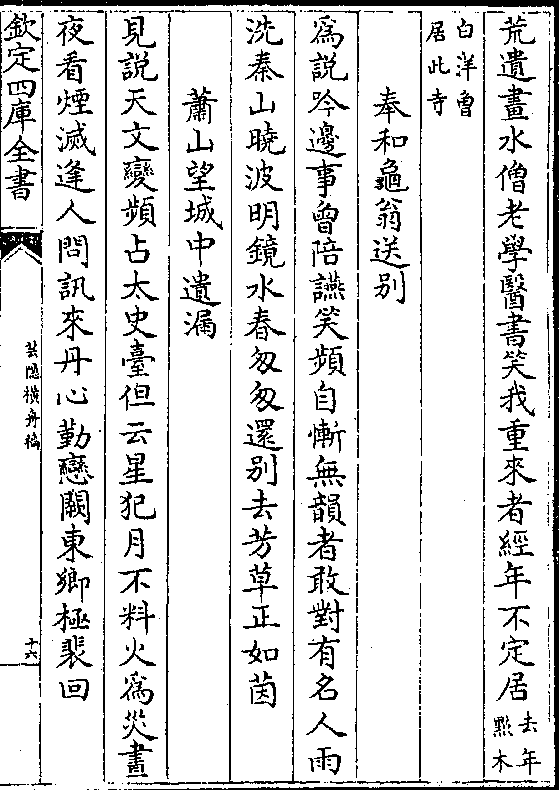 荒遺畫水僧老學醫書笑我重來者經年不定居去年㸃木
白洋曾居此寺
奉和龜翁送别
爲說吟邊事曾陪讌笑頻自慚無韻者敢對有名人雨
洗秦山曉波明鏡水春匆匆還别去芳草正如茵
蕭山望城中遺漏
見說天文變頻占太史臺但云星犯月不料火爲災晝
夜看煙滅逢人問訊來丹心勤戀闕東鄉極裴回
欽定四庫全書
芸隠橫舟稿
十六